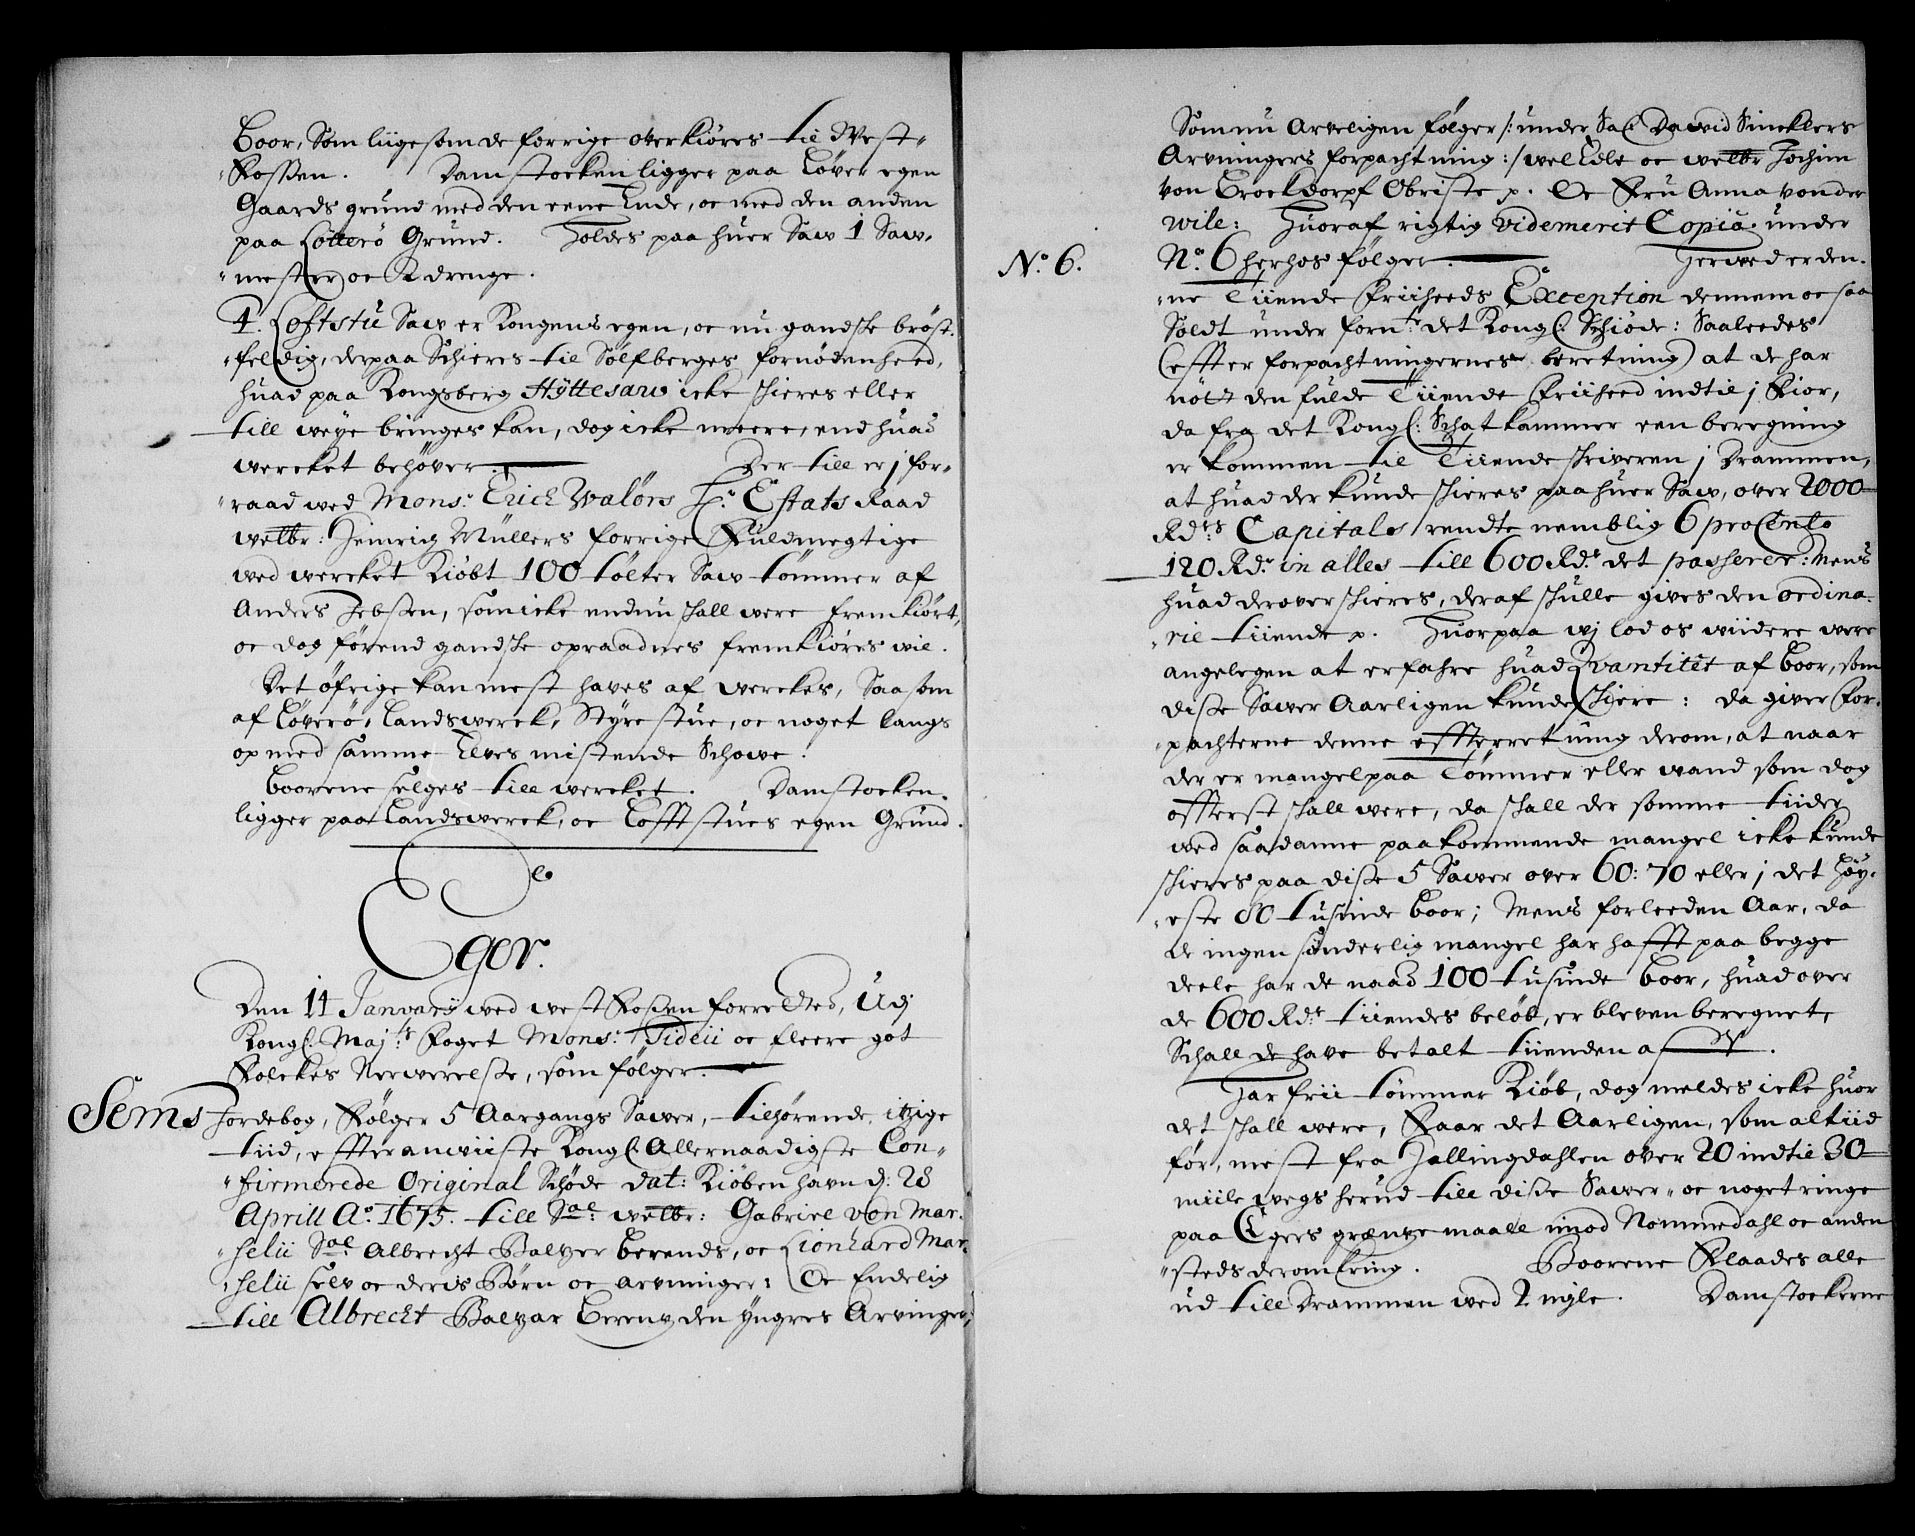 Boor, Som liige som de forrige overkiøres til West-
Fossen. Damstocken ligger paa Løver egen
Gaards grund med den eene Ende, oc med den anden
paa Løtterø Grund. Holdes paa huer Saw 1 Saw-
mester oc 2 drenge.
4. Loftstu Saw er Kongens egen, oc nu gandske brøst-
feldig, derpaa Schieres til Sølfberges fornødenheed,
huad paa Kongsberg Hÿttesaw icke schieres eller
till weye bringes kan, dog icke meere, end huad
wercket behøver. Der till er j for-
raad wed Mons: Erich Waløns Hr. Estats Raad
welbr: Henrich Müllers forrige Fuldmegtige
wed wercket Kiøbt 100 tølter Saw tømmer af
Anders Jebsen, som icke endnu schall were fremkiørt,
oc dog førend gandske opraadnes fremkiøres wil.
Det øfrige kan mest haves af werckes, Saasom
af Løverø, Landswerck, Styrestue, oc noget langs
op med samme Elves mistende Schowe.
Boorene selges till wercket. Damstocken
ligger paa Landswerck, oc Lofftstues egen Grund.
Eger.
Den 11 Januarij wed westFossen forretted, Udj
Kongl: Maj:ts Foget Mons: Tideii oc fleere got
Folckes Nerwerelse, som følger.
Sems Jordebog, Følger 5 Aargangs Sawer, tilhørende itzige
tiid, effter anwiiste Kongl: Allernaadigste Con-
firmerede Original Schøde dat: Kiøbenhavn d: 28
Aprill Ao. 1675. till Sal: welbr: Gabriel von Mar-
selii Sal: Albrecht Baltzer Berends, oc Lionhard Mar-
selii selv oc deris Børn oc arvninger: Oc Endelig
till Albrecht Baltzar Berentz den yngres Arvinger,
Som nu Arveligen følger /: under Sal: Dawid Sincklers
Arvningers forpachtning :/ wel Edle oc welbr Jochim
von Brockdorpf Obriste p. Oc Fru Anna von der
wile: Huoraf rigtig Videmerit Copia under
No. 6.
No. 6 herhos følger. Herwed er den-
ne Tiiende Friiheeds Exception dennem oc saa
Soldt under fornte det Kongl: Schiøde: Saaleedes
(effter forpachtningernes beretning) at de har
nött den fulde Tiiende Friiheed indtil j Fior,
da fra det Kongl: Schatkammer een beregning
er kommen til Tiiende schriveren j Drammen,
at huad der kunde schieres paa huer Saw, over 2000
Rdrs Capitals rendte nemblig 6 pro Cento
120 Rdr. in alles till 600 Rdr. det passerer: Mens
huad derover schieres, deraf schulle gives den ordina-
rie tiiende p. Huorpaa wj lod os wiidere were
angelegen at erfahre huad Qvantitet af Boor, som
disse Sawer Aarligen kunde Schiere: da giver For-
pachterne denne effterretning derom, at naar
der er mangel paa Tømmer eller wand som dog
offterst schall were, da schall der somme tiider
wed saadanne paakommende mangel icke kunde
schieres paa disse 5 Sawer over 60: 70 eller j det høy-
este 80 tusinde Boor; Mens forleeden Aar, da
de ingen sønderlig mangel har hafft paa begge
deele har de naad 100 tusinde Boor, huad over
de 600 Rdr tiiendes beløb, er bleven beregnet,
Schall de have betalt tiienden af.
Har frii tømmer Kiøb, dog meldes icke huor
det schall were, Faar det Aarligen, som altiid
før, mest fra Hallingdahlen over 20 indtil 30
miile wegs herud till disse Sawer, oc noget ringe
paa Egers grentze maall imod Nommedahl oc anden
steds deromkring. Boorene Flaades alle
ud till Drammen wed 2 mijle. Damstockerne